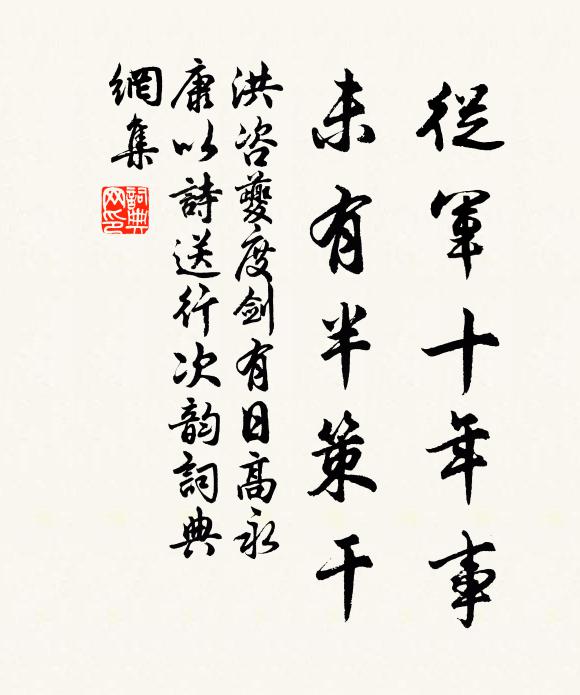 從軍十年事
未有半策干
洪咨夔度劍有日高永
康以詩送行次韵詞典
網集
詞典
网印